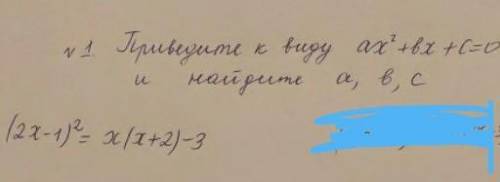 №1. Приведите к виду ax²+bx+c=0
и найдите a, b, c
(2x-1)²= x(x+2)-3